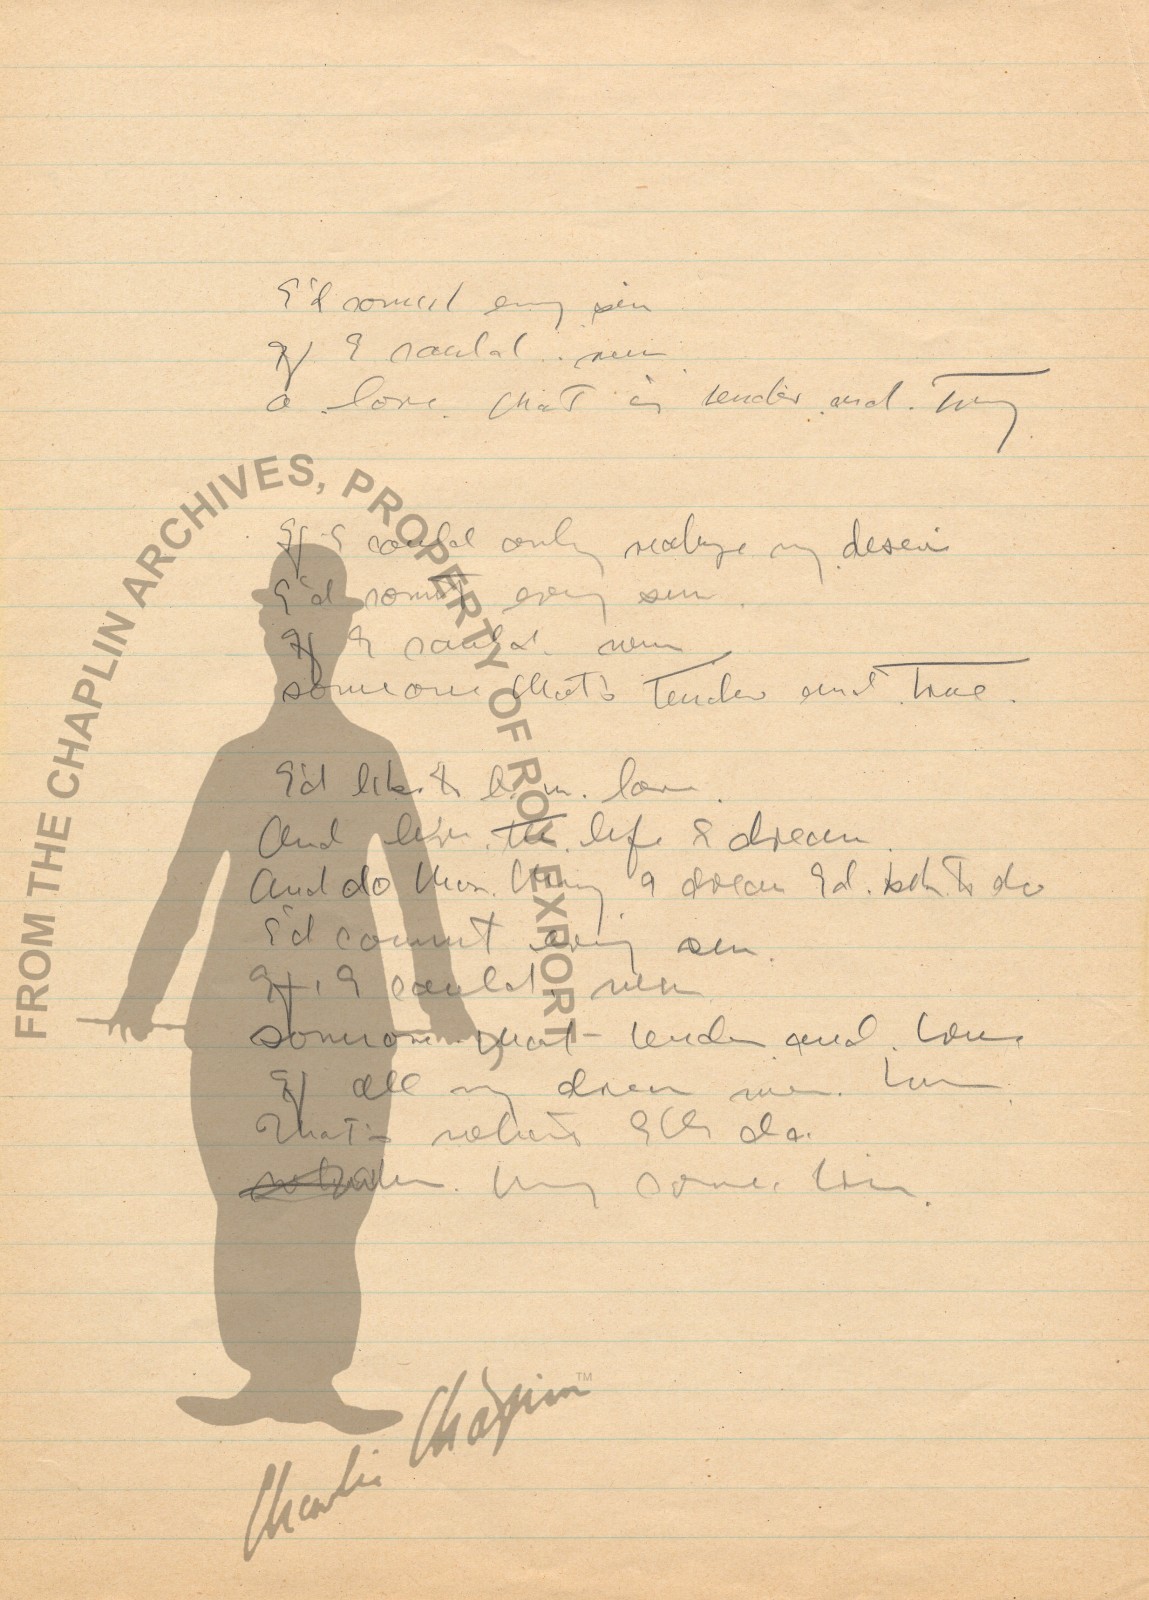 I'd commit every sin
If I could win
a love that is tender and true
If I could only realize my desire
I'd commit every sin
If I could win
someone that's tender and true.
I'd like to be in love
And live the life I dream
And do the things I dream I'd like to do
I'd commit every sin
If I could win
someone that tender and true
If all my dream were true
That's what I'd do.
FROM THE CHAPLIN ARCHIVES, PROPERTY OF ROY EXPORT
Charlie Chaplin™